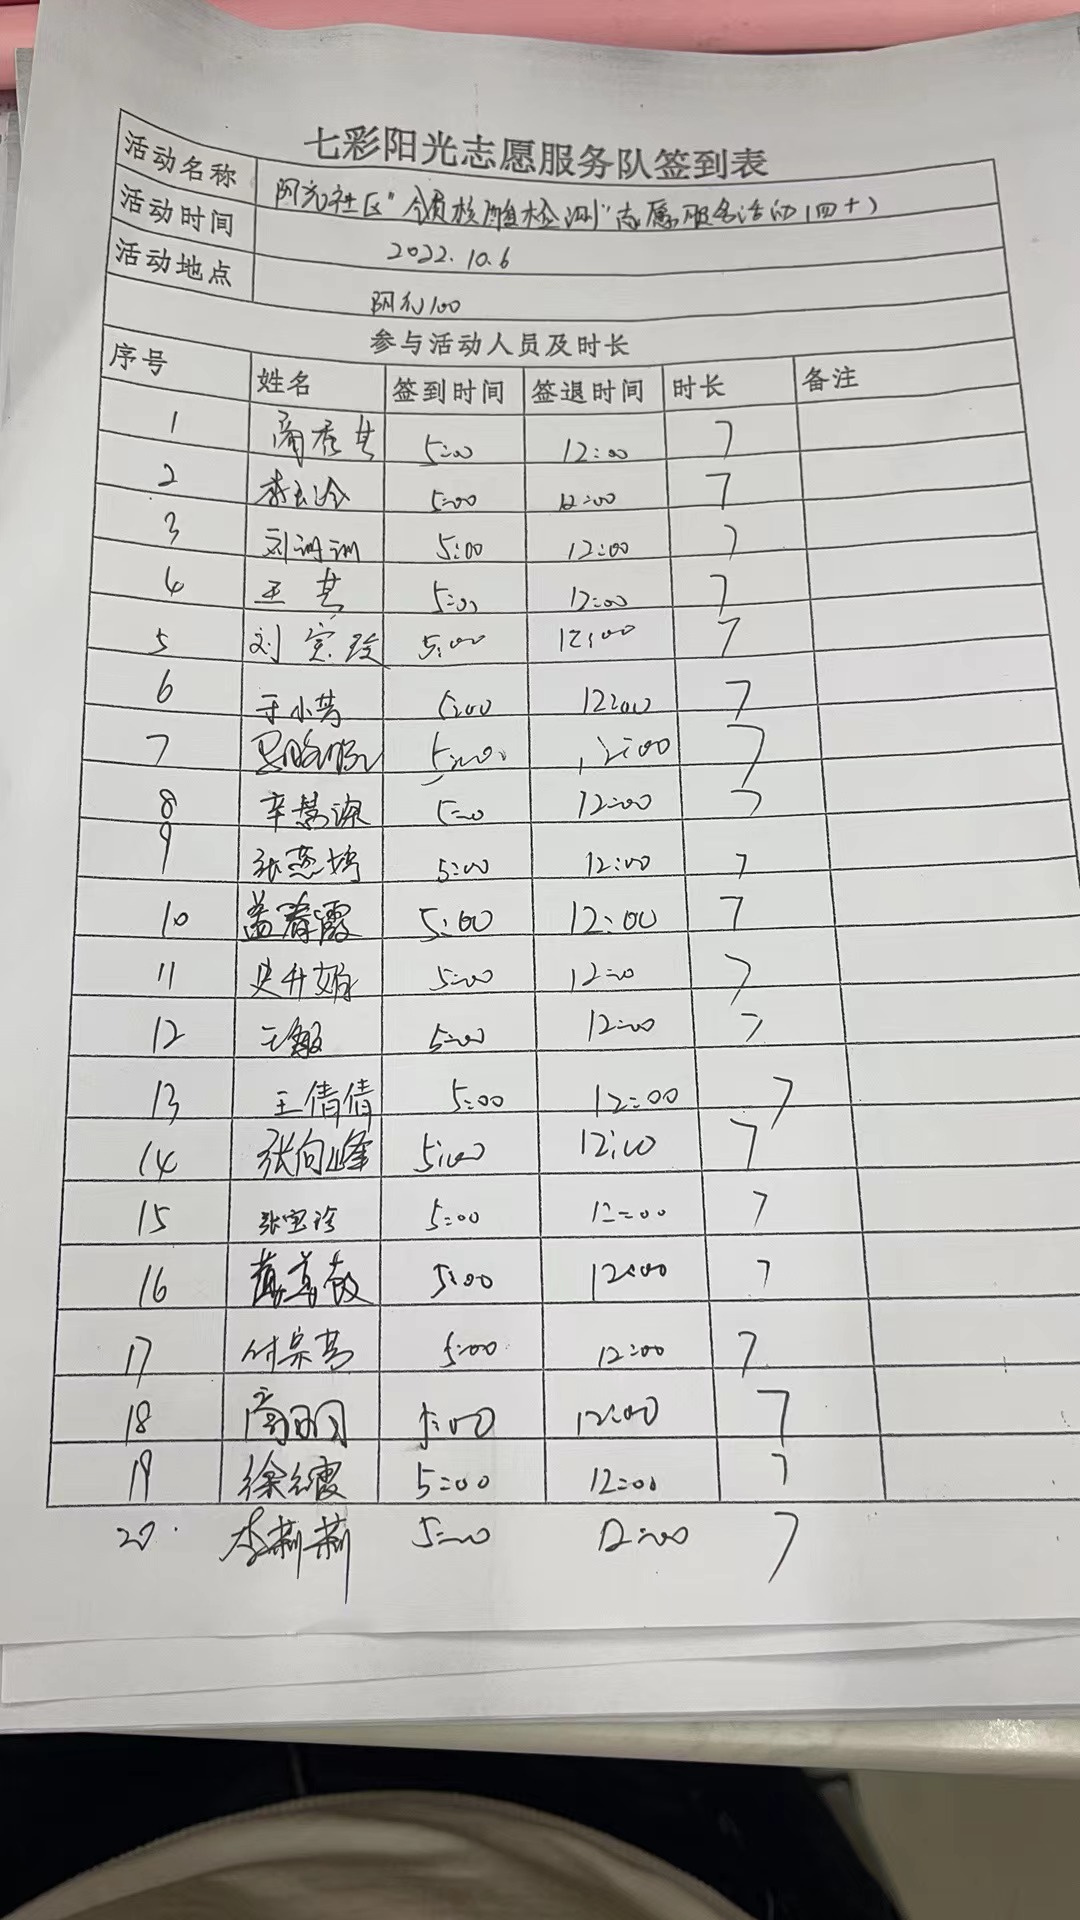 七彩阳光志愿服务队签到表
活动名称 阳光社区"全员核酸检测"志愿服务活动(四十)
活动时间 2022.10.6
活动地点 阳光100
参与活动人员及时长
序号 姓名 签到时间 签退时间 时长 备注
1 商秀其 5:00 12:00 7
2 李玉冷 5:00 12:00 7
3 刘训训 5:00 12:00 7
4 王其 5:00 12:00 7
5 刘宝玲 5:00 12:00 7
6 于小芳 5:00 12:00 7
7 5:00 12:00 7
8 辛慧 5:00 12:00 7
9 张燕婷 5:00 12:00 7
10 盖春霞 5:00 12:00 7
11 史升娟 5:00 12:00 7
12 王敏 5:00 12:00 7
13 王倩倩 5:00 12:00 7
14 张向峰 5:00 12:00 7
15 张宝珍 5:00 12:00 7
16 5:00 12:00 7
17 付宗芳 5:00 12:00 7
18 商明 5:00 12:00 7
19 徐红霞 5:00 12:00 7
20. 李莉莉 5:00 12:00 7